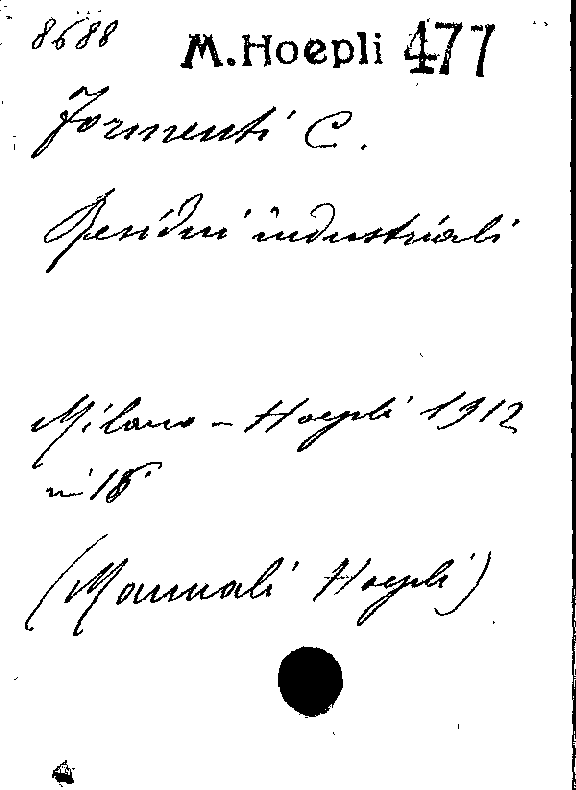 8688
M. Hoepli 477
Formenti C.
Residui industriali
Milano - Hoepli 1912
in 18°
(Manuali Hoepli)